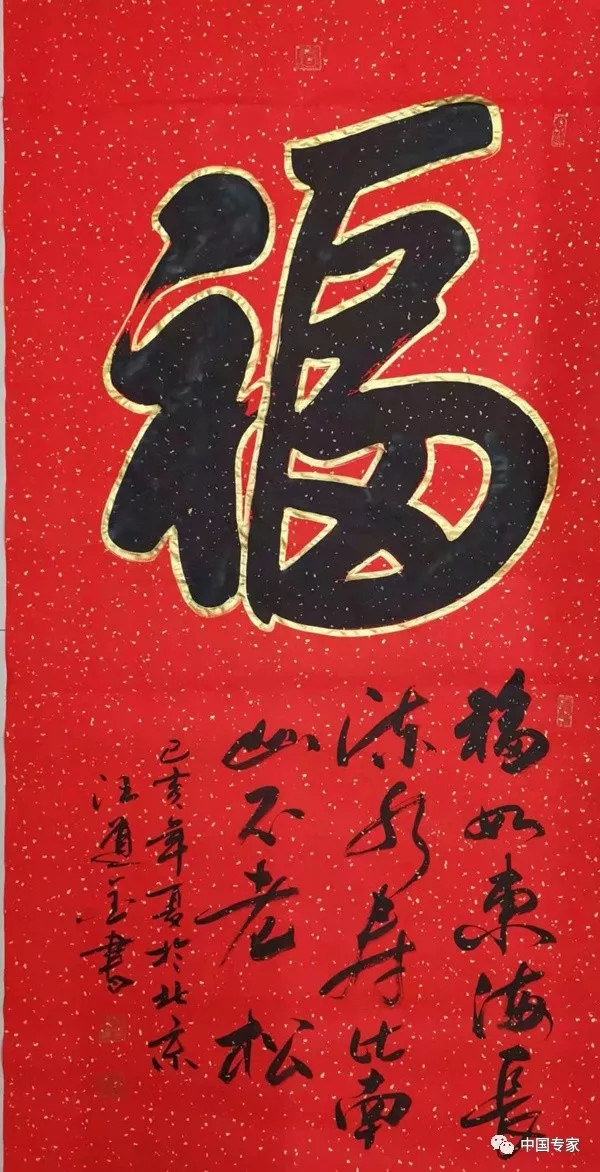 福
福如東海長
流水寿比南
山不老松
己亥年夏於北京
汪道金書
中国专家